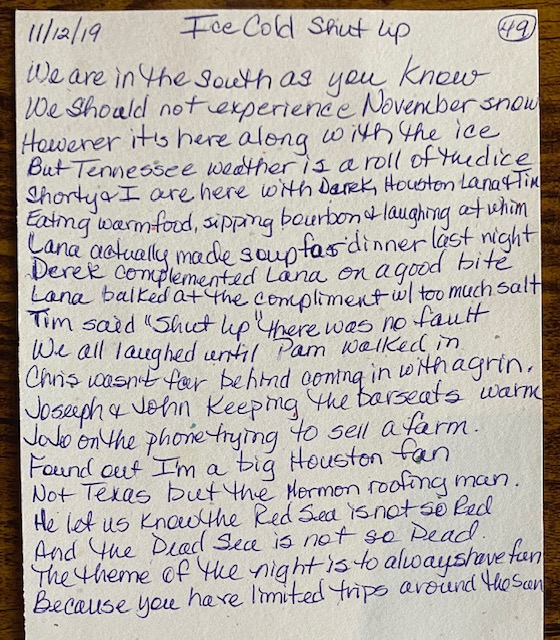 11/12/19 Ice Cold Shut up 49
We are in the South as you know
We should not experience November snow
However it's here along with the ice
But Tennessee weather is a roll of the dice
Shorty & I are here with Derek, Houston Lana & Tim
Eating warm food, sipping bourbon & laughing at whim
Lana actually made soup for dinner last night
Derek complemented Lana on a good bite
Lana balked at the compliment w/ too much salt
Tim said "Shut up" there was no fault
We all laughed until Pam walked in
Chris wasn't far behind coming in with a grin.
Joseph & John keeping the barseats warm
JoJo on the phone trying to sell a farm.
Found out I'm a big Houston fan
Not Texas but the Mormon roofing man.
He let us know the Red Sea is not so Red
And the Dead Sea is not so Dead.
The theme of the night is to always have fun
Because you have limited trips around the sun